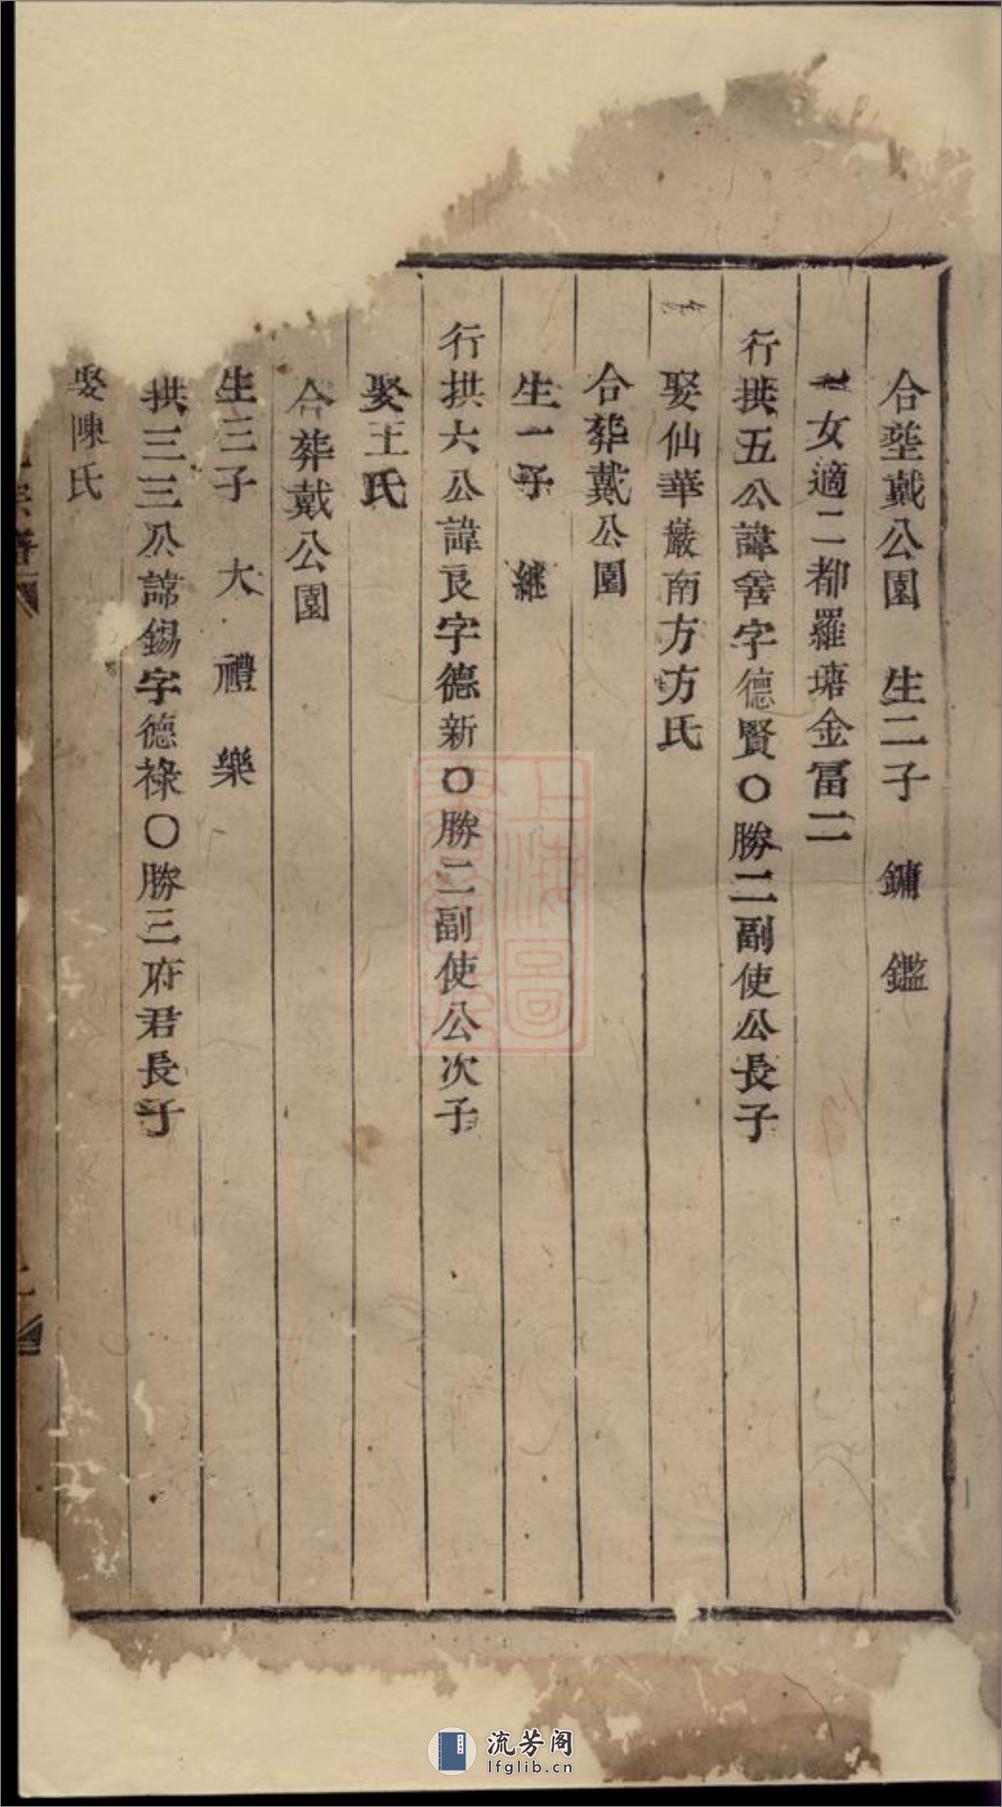 合塟戴公園 生二子 鏞 鑑
一女適二都羅塘金冨二
行拱五公諱善字德賢〇勝二副使公長子
娶仙華巖南方方氏
合葬戴公園
生一子 継
行拱六公諱良字德新〇勝二副使公次子
娶王氏
合葬戴公園
生三子 大 禮 樂
拱三三公諱錫字德祿〇勝三府君長子
娶陳氏
流芳阁
lfglib.cn